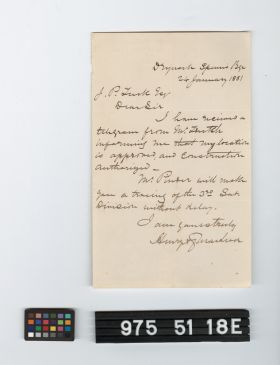 24 January 1881
J. P. Esq
Dear Sir
I have received a
telegram from Mr.
informing me that my location
is approved and construction
authorized —
Mr. will make
you a tracing of the 3rd
Division without delay.
I am yours truly
Henry
975 51 18E